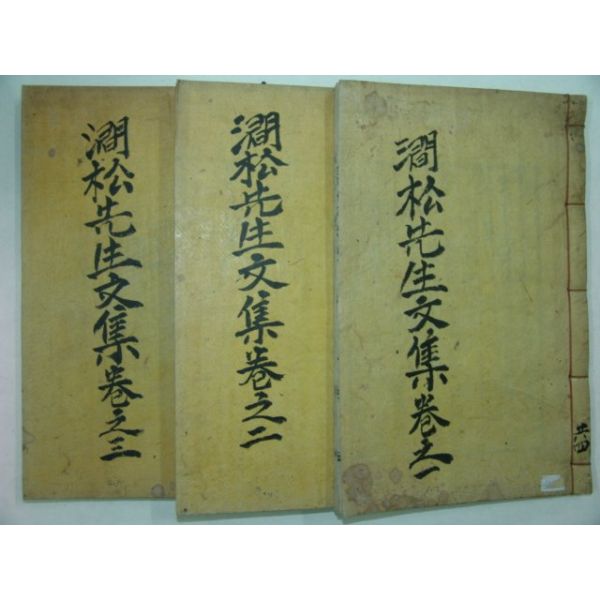 共四
澗松先生文集卷之一
澗松先生文集卷之二
澗松先生文集卷之三